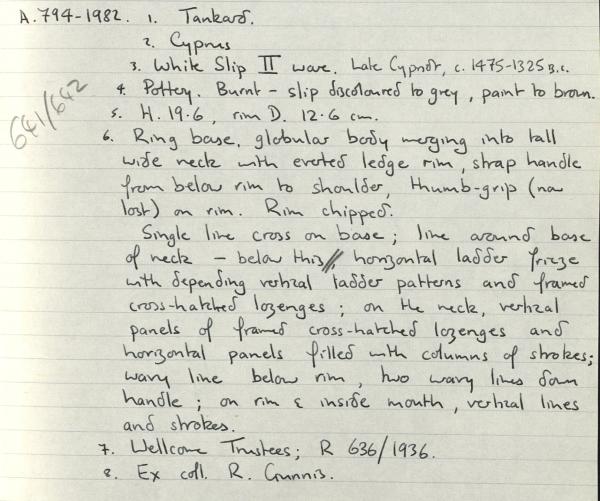 A.794-1982. 1. Tankard.
2. Cyprus
3. White Slip II ware. Late Cypriot, c. 1475-1325 B.C.
641/642
4. Pottery. Burnt - slip discoloured to grey, paint to brown.
5. H. 19.6, rim D. 12.6 cm.
6. Ring base, globular body merging into tall
wide neck with everted ledge rim, strap handle
from below rim to shoulder, thumb-grip (now
lost) on rim. Rim chipped.
Single line cross on base; line around base
of neck - below this, horizontal ladder frieze
with depending vertical ladder patterns and framed
cross-hatched lozenges; on the neck, vertical
panels of framed cross-hatched lozenges and
horizontal panels filled with columns of strokes;
wavy line below rim, two wavy lines down
handle; on rim & inside mouth, vertical lines
and strokes.
7. Wellcome Trustees; R 636/1936.
8. Ex coll. R. Gunnis.